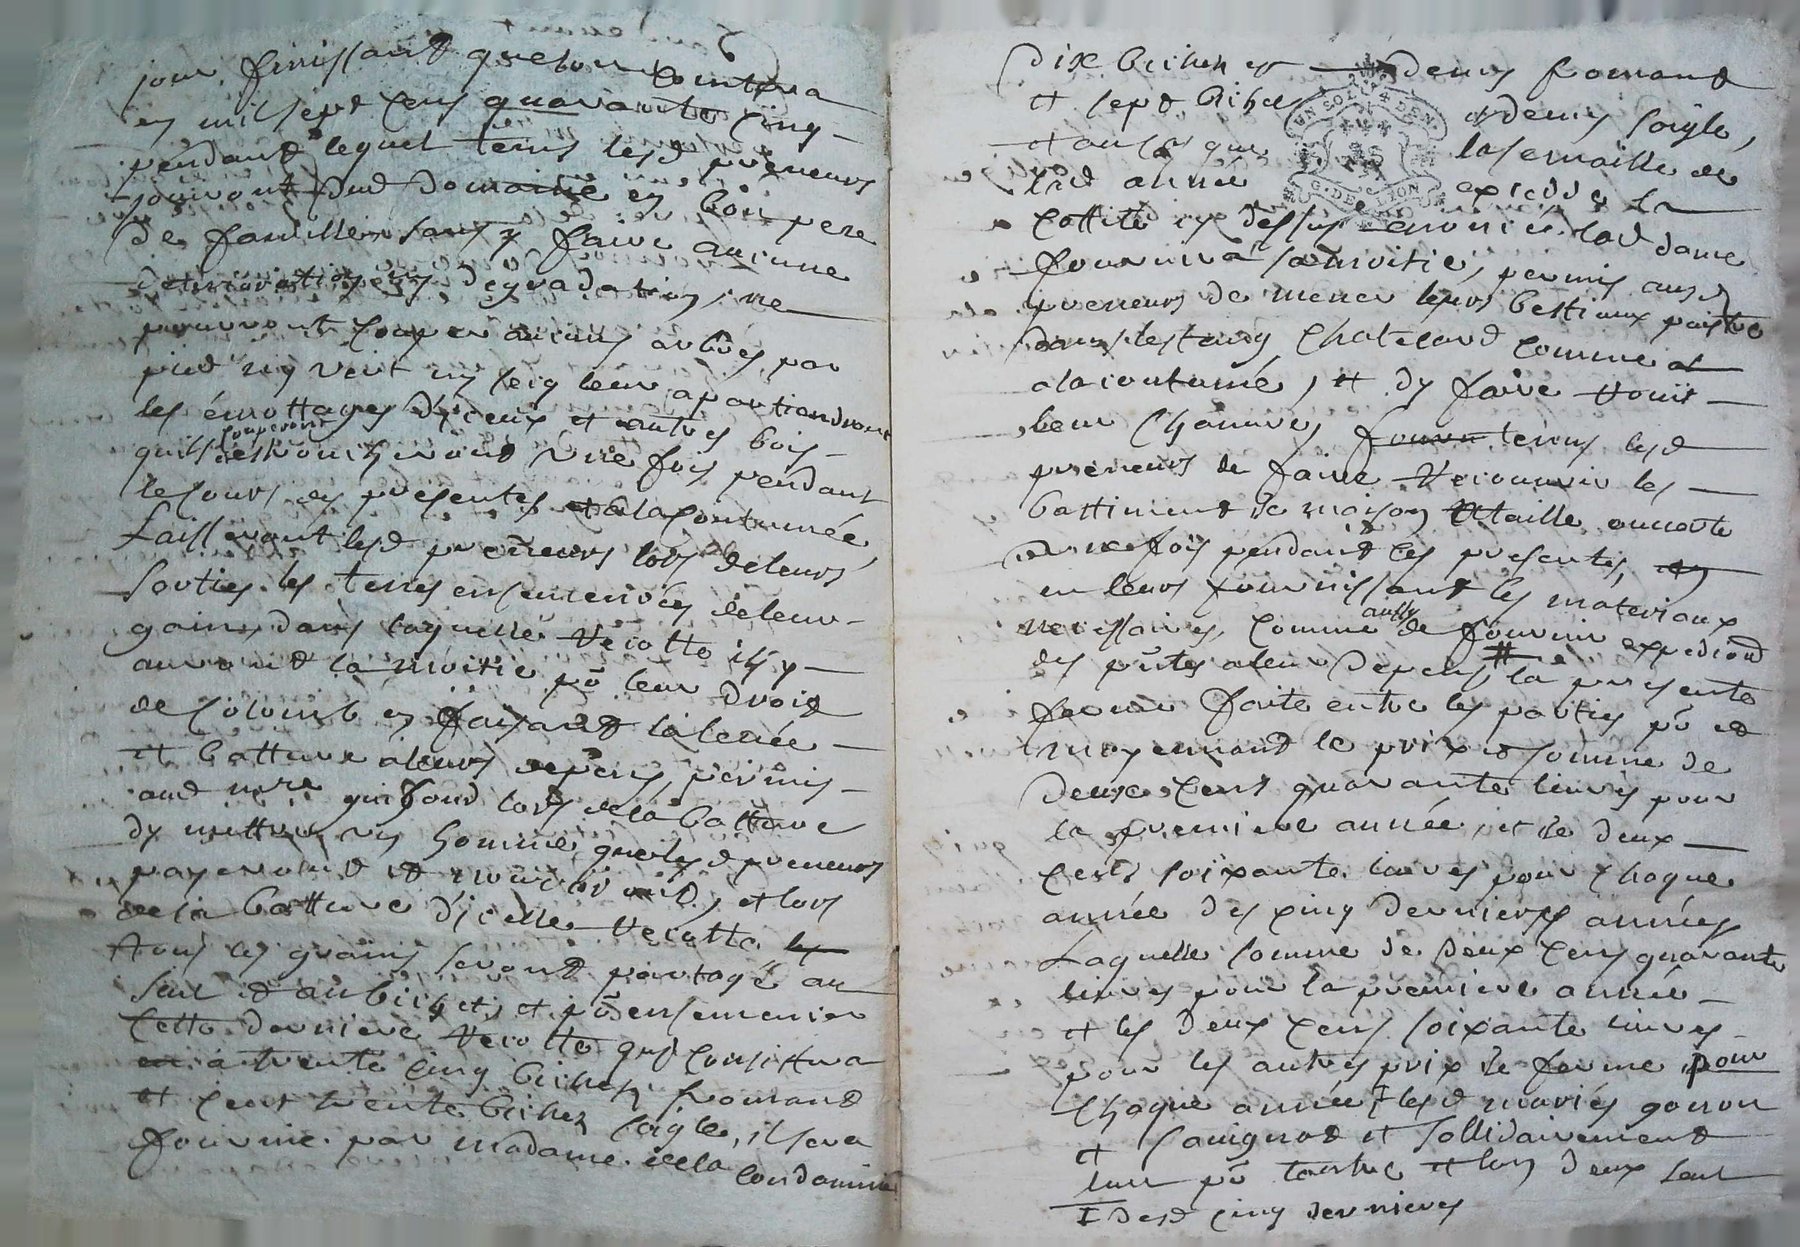 jour finissant que lon Contera
en mil sept cens quarante cinq
pendant lequel tems lesd preneurs
jouiront dud domaine en bon pere
de famille sans y faire aucune
deterioration ny degradation, ne
pourront couper aucuns arbres par
pied ny vert ny secq leur apartiendront
les émottages d'iceux et autres bois
quils couperont une fois pendant
le cours des presentes et a la coutumée,
Laisseront lesd preneurs lors de leurs
sorties les terres ensemencées de leur
grains dans laquelle recolte ils y
auront la moitie po leur droit
de colomb en faisant la levée
et batture aleurs depens, permis
aud lors de la batture
dy mettre un homme que lesd preneurs
payeront et nouriront, et lors
de la batture d'icelle recolte
tous les grains seront partagé au
seul et au bichet, et po ensemencer
Cette derniere recolte qui consistera
en a trente cinq bichets fromand
et cent trente bichets soigle, il sera
fournie par madame de la
Condamine
dix bichets et demis fromand
et sept bichets et demis soigle,
et au cas que la semaille de
lad année excedde la
cottité cy dessus enoncée lad dame
fournira sa moitie, permis ausd
preneurs de mener leurs bestiaux paistre
dans lestang Chatelard comme
a la coutumé, et dy faire rouir
leur chanvres, tenus lesd
preneurs de faire recouvrir les
battiment de maison a taille ouverte
une fois pendant les presentes,
en leurs fournissant les materiaux
necessaires, comme aussy de fournir expediond
des pntes a leur depens, la presente
ferme faite entre les parties po et
moyennant le prix et somme de
deux cens quarante livres pour
la premiere année, et de deux
cens soixante livres pour chaque
année des cinq dernieres années
Laquelle somme de deux cens quarante
livres pour la premiere année
et les deux cens soixante livres
pour les autres prix de ferme pour
chaque année lesd mariés gonon
et sauignat et sollidairement
lun po lautre et lun deux seul
I desd cinq dernieres
UN SOL 4 DEN.
G. DE LION